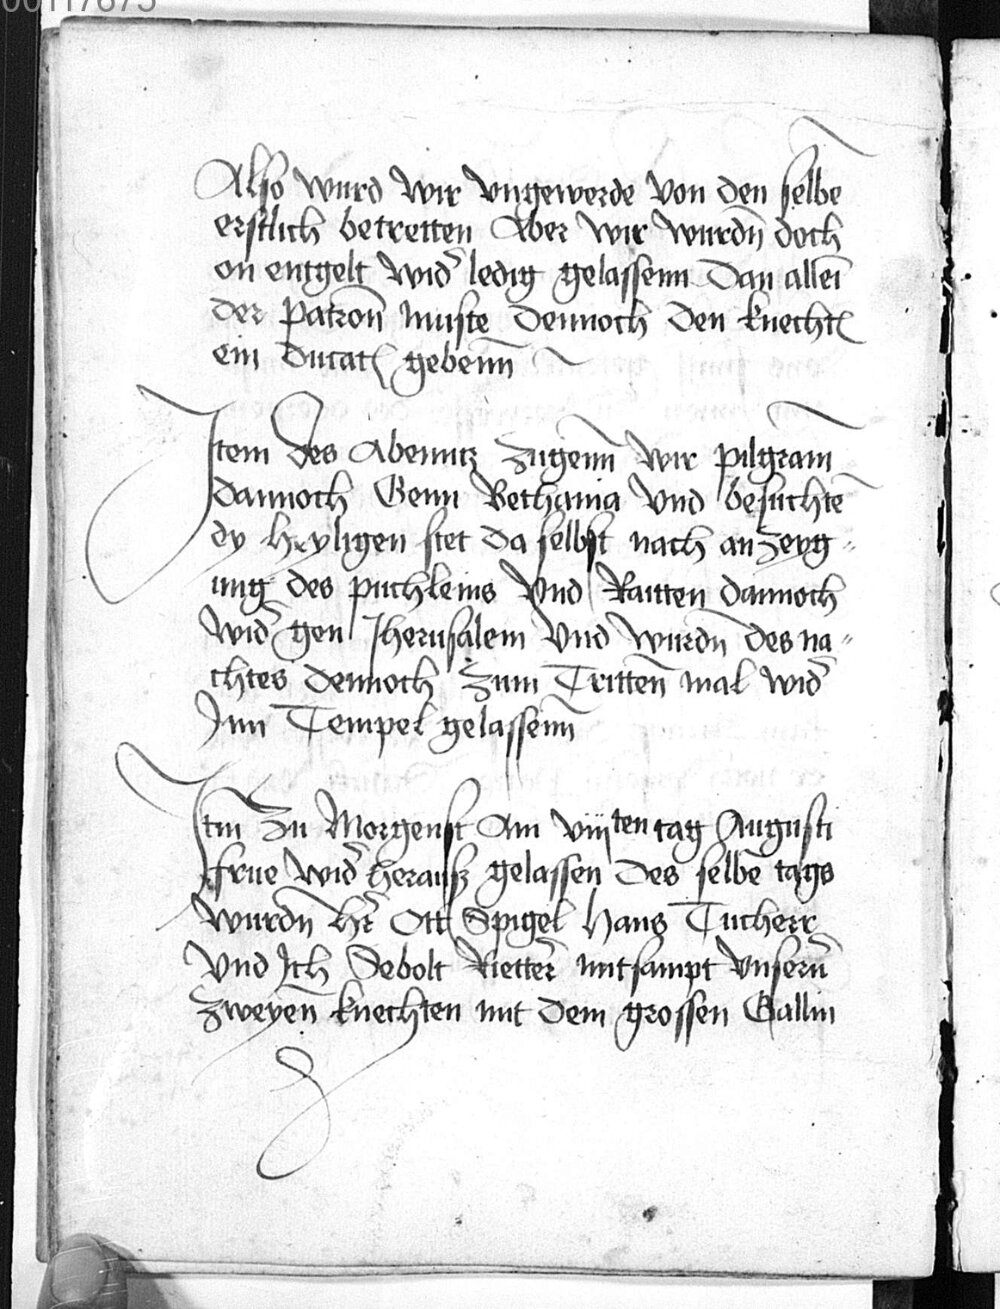 00117675
Also wurd wir vngewerde von den selbē
erstlich betretten Aber wir wurdn̄ doch
on entgelt wid' ledig gelassenn Dan allei
der patron̄ muste dennoch den knecht
ein ducat gebenn̄
Item des Abenntz zugenn̄ wir pilgram
dannoch Genn Bethania vnd besuchtē
dy heyligen stet da selbst nach anzeyg=
ung des puchleins vnd Raitten dannoch
wid' gen Jherusalem vnd wurdn̄ des na=
chtes dennoch zum Tritten̄ mal wid'
Inn Tempel gelassenn̄
Itm zu Morgenst Am viijten tag Augusti
frue wid' herausz gelassen des selbē tags
wurdn̄ hr̄ Ott Spigel Hans Tucherr
vnd Ich Sebolt Rietter̄ mitsampt vnsern̄
zweyen̄ knechten mit dem grossen Gallin